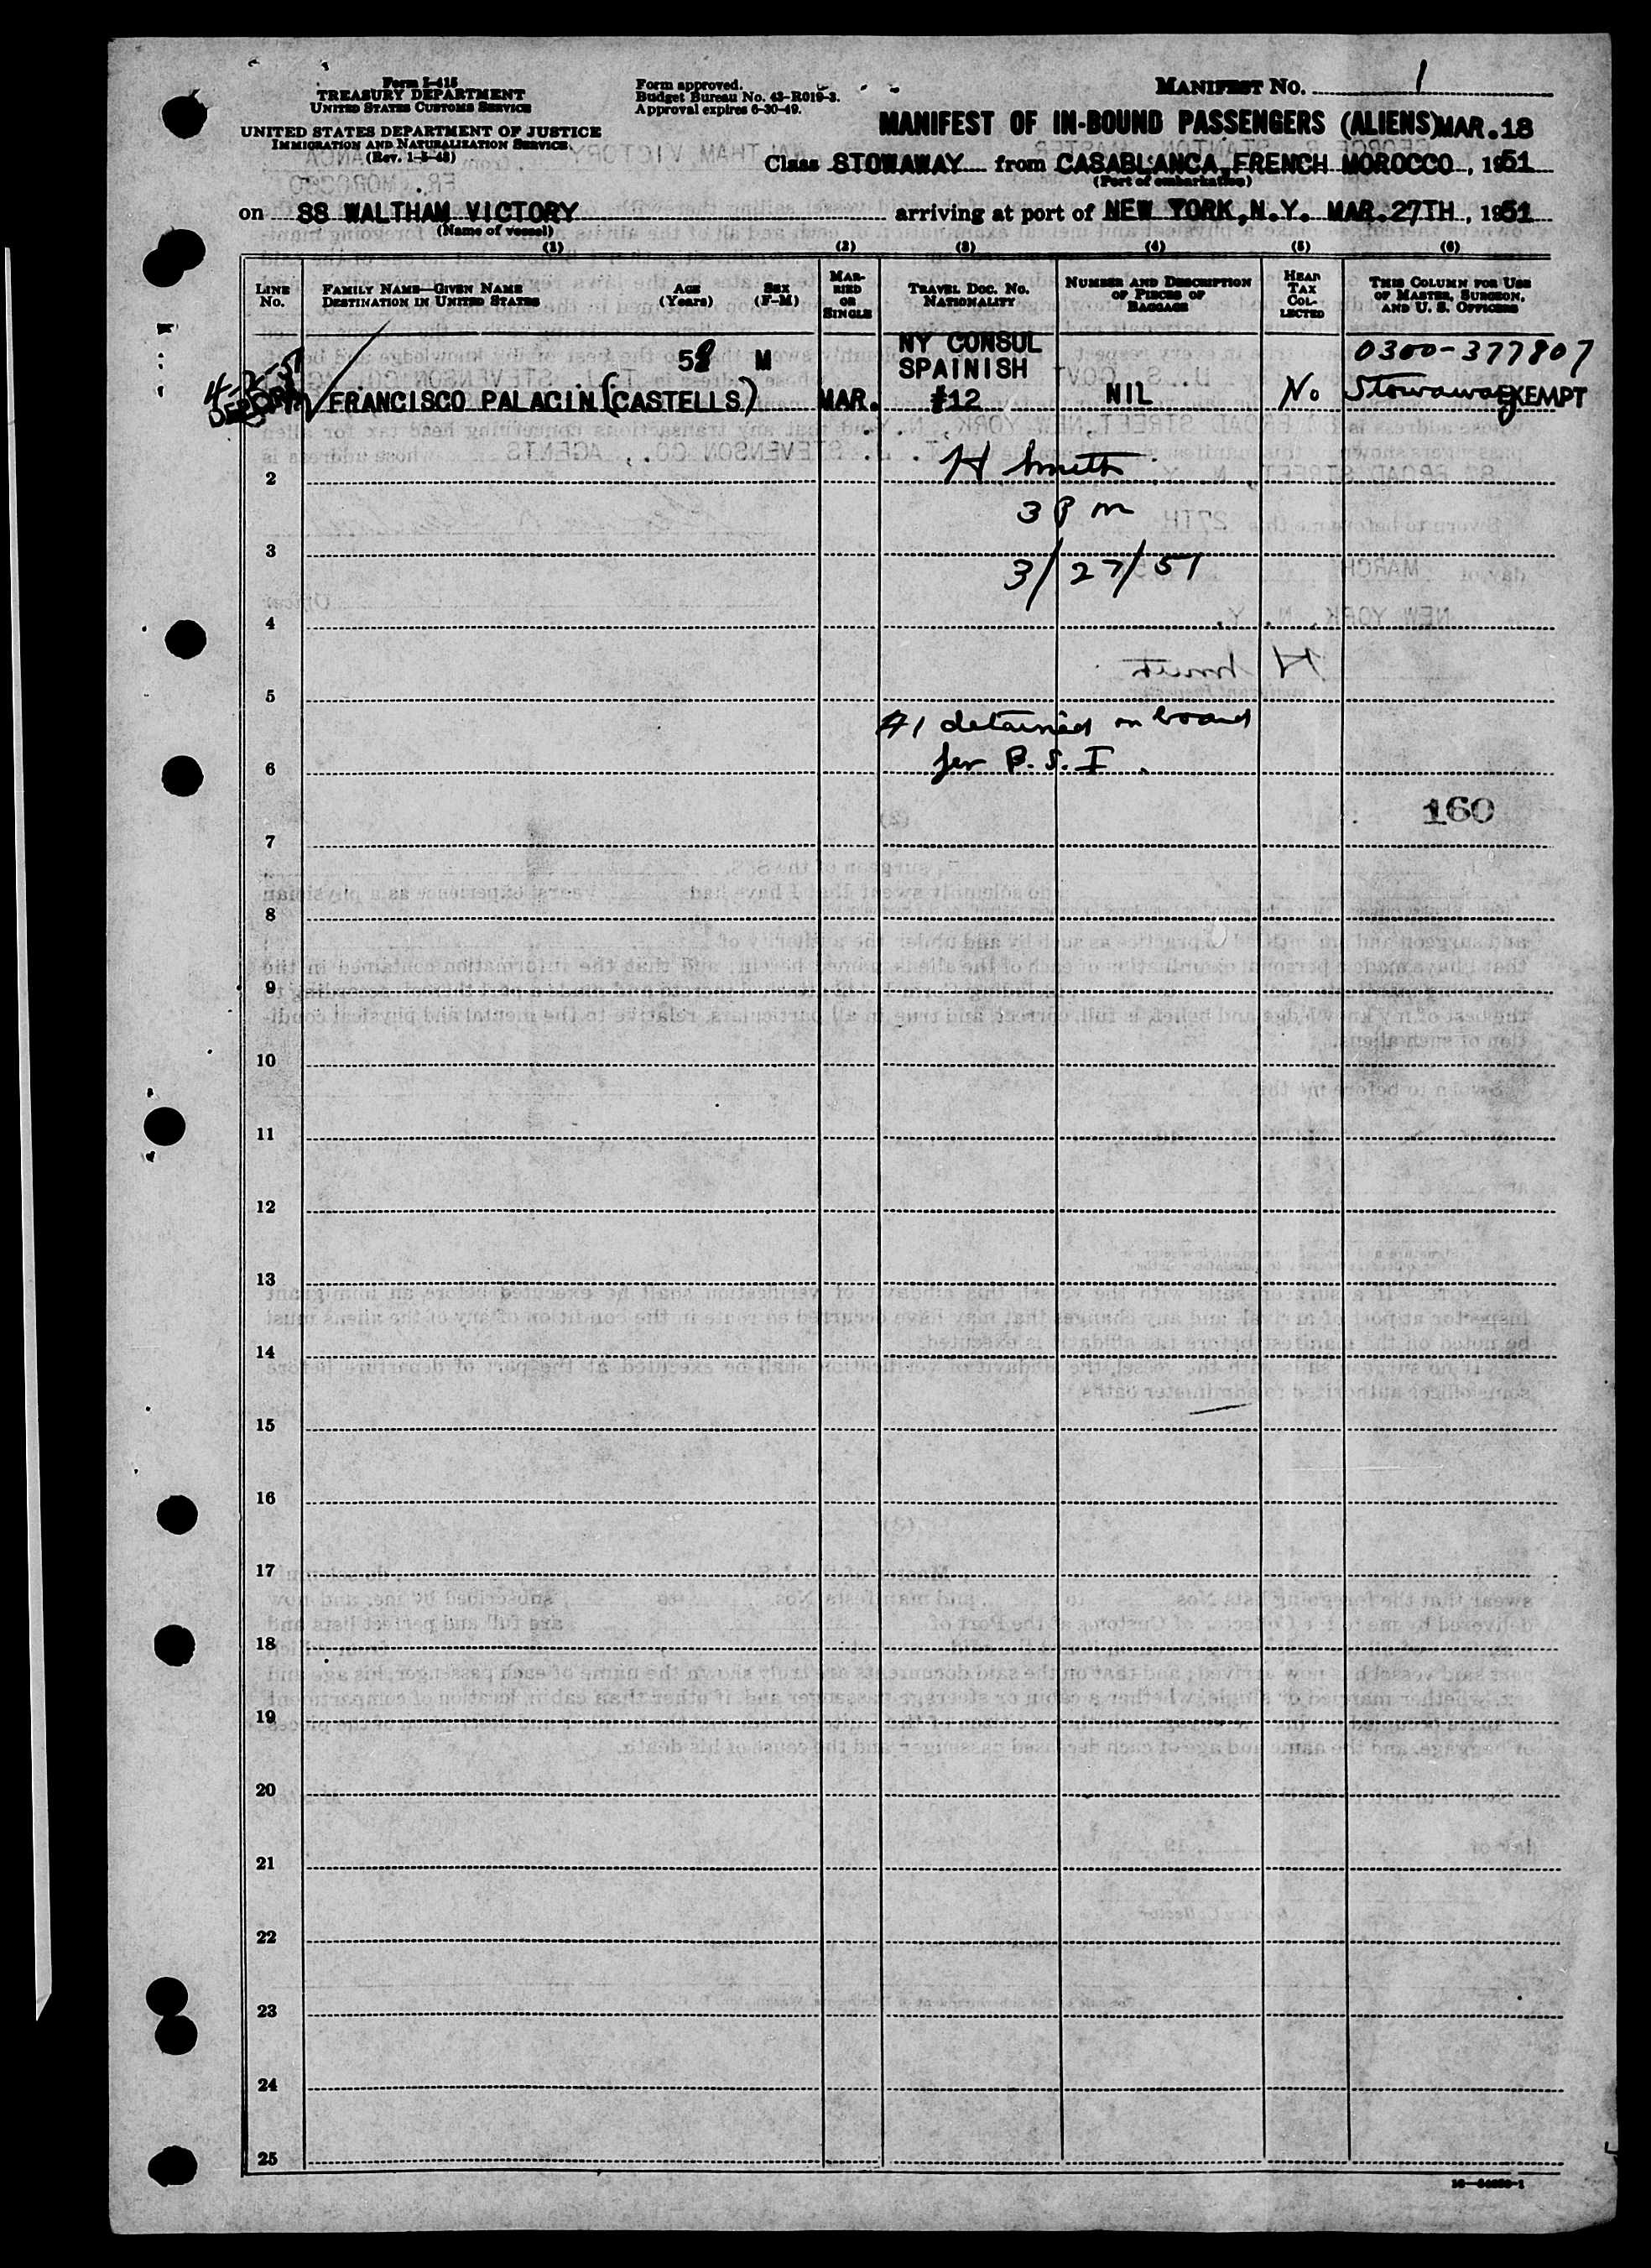 Form I-415
TREASURY DEPARTMENT
UNITED STATES CUSTOMS SERVICE
UNITED STATES DEPARTMENT OF JUSTICE
IMMIGRATION AND NATURALIZATION SERVICE
(Rev. 1-5-48)
Form approved.
Budget Bureau No. 43-R019-3.
Approval expires 6-30-49.
MANIFEST NO. 1
MANIFEST OF IN-BOUND PASSENGERS (ALIENS) MAR. 18
Class STOWAWAY from CASABLANCA, FRENCH MOROCCO, 1951
(Port of embarkation)
on SS WALTHAM VICTORY arriving at port of NEW YORK, N.Y. MAR. 27TH, 1951
(Name of vessel)
(1) (2) (3) (4) (5) (6)
LINE NO. FAMILY NAME—GIVEN NAME DESTINATION IN UNITED STATES AGE (Years) SEX (F-M) MARRIED OR SINGLE TRAVEL DOC. NO. NATIONALITY NUMBER AND DESCRIPTION OF PIECES OF BAGGAGE HEAD TAX COLLECTED THIS COLUMN FOR USE OF MASTER, SURGEON, AND U. S. OFFICERS
NY CONSUL 0300-377807
58 M SPAINISH
DEPORT FRANCISCO PALACIN (CASTELLS) MAR. #12 NIL No Stowaway EXEMPT
H Smith
2
3 P m
3
3/27/51
4
5
#1 detained on board
for B.S.I.
6
160
7
8
9
10
11
12
13
14
15
16
17
18
19
20
21
22
23
24
25